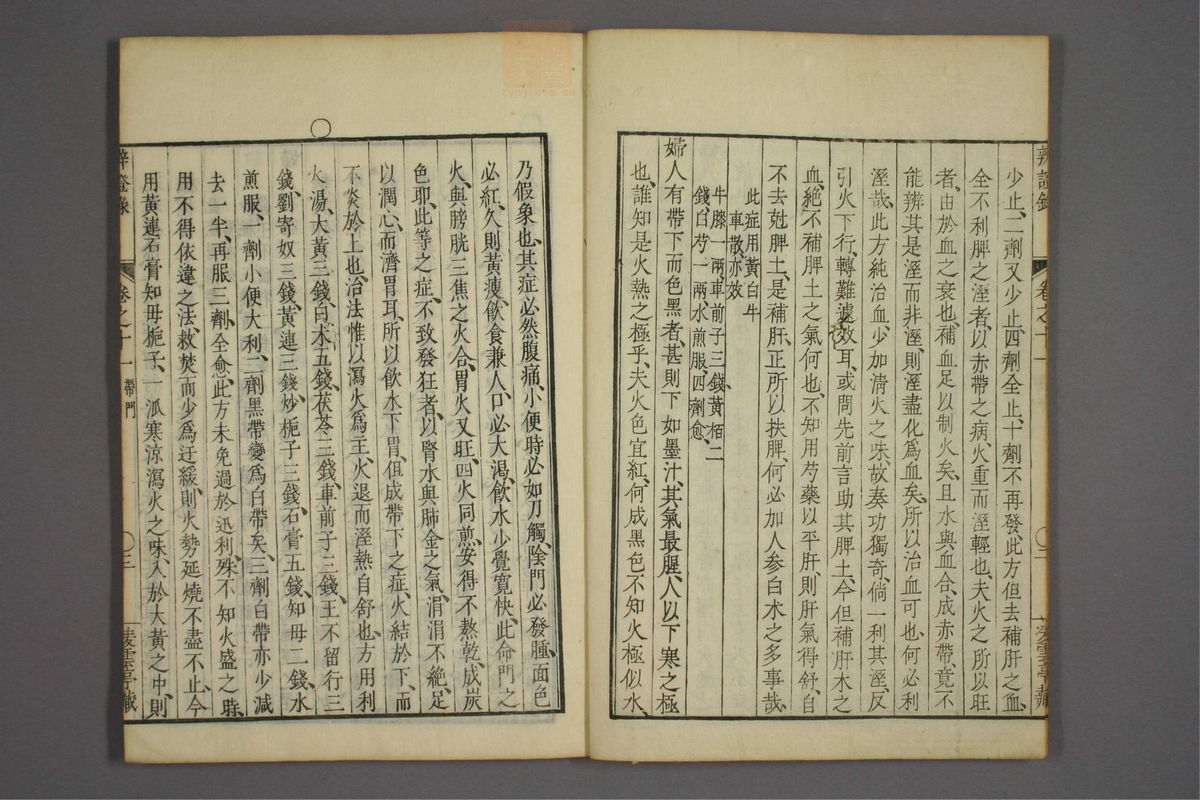 辨證錄 卷之十一 二
少止、二劑又少止、四劑全止、十劑不再發、此方但去補肝之血、
全不利脾之溼者、以赤帶之病、火重而溼輕也、夫火之所以旺
者、由於血之衰也、補血足以制火矣、且水與血合、成赤帶、竟不
能辨其是溼而非溼、則溼盡化爲血矣、所以治血可也、何必利
溼哉、此方純治血、少加清火之味、故奏功獨奇、倘一利其溼、反
引火下行、轉難遽效耳、或問先前言助其脾土、今但補肝木之
血、絕不補脾土之氣何也、不知用芍藥以平肝則肝氣得舒、自
不去尅脾土、是補肝、正所以扶脾、何必加人參白朮之多事哉、
此症用黃白牛
車散、亦效
牛膝一兩、車前子三錢、黃栢二
錢、白芍一兩、水煎服、四劑愈、
婦人有帶下而色黑者、甚則下如墨汁、其氣最腥、人以下寒之極
也、誰知是火熱之極乎、夫火色宜紅、何成黑色、不知火極似水、
乃假象也、其症必然腹痛、小便時必如刀觸、陰門必發腫、面色
必紅、久則黃瘦、飲食兼人、口必大渴、飲水少覺寬快、此命門之
火、與膀胱三焦之火合、胃火又旺、四火同煎、安得不熬乾、成炭
色耶、此等之症、不致發狂者、以腎水與肺金之氣、涓涓不絕、足
以潤心、而濟胃耳、所以飲水下胃、但成帶下之症、火結於下、而
不炎於上也、治法惟以瀉火爲主、火退而溼熱自舒也、方用利
火湯、大黃三錢、白朮五錢、茯苓三錢、車前子三錢、王不留行三
錢、劉寄奴三錢、黃連三錢、炒梔子三錢、石膏五錢、知母二錢、水
煎服、一劑小便大利、二劑黑帶變爲白帶矣、三劑白帶亦少減
去一半、再服三劑、全愈、此方未免過於迅利、殊不知火盛之時、
用不得依違之法、救焚而少爲迂緩、則火勢延燒不盡不止、今
用黃連石膏知母梔子、一派寒涼瀉火之味、入於大黃之中、則
辨證錄 卷之十一 帶門 三